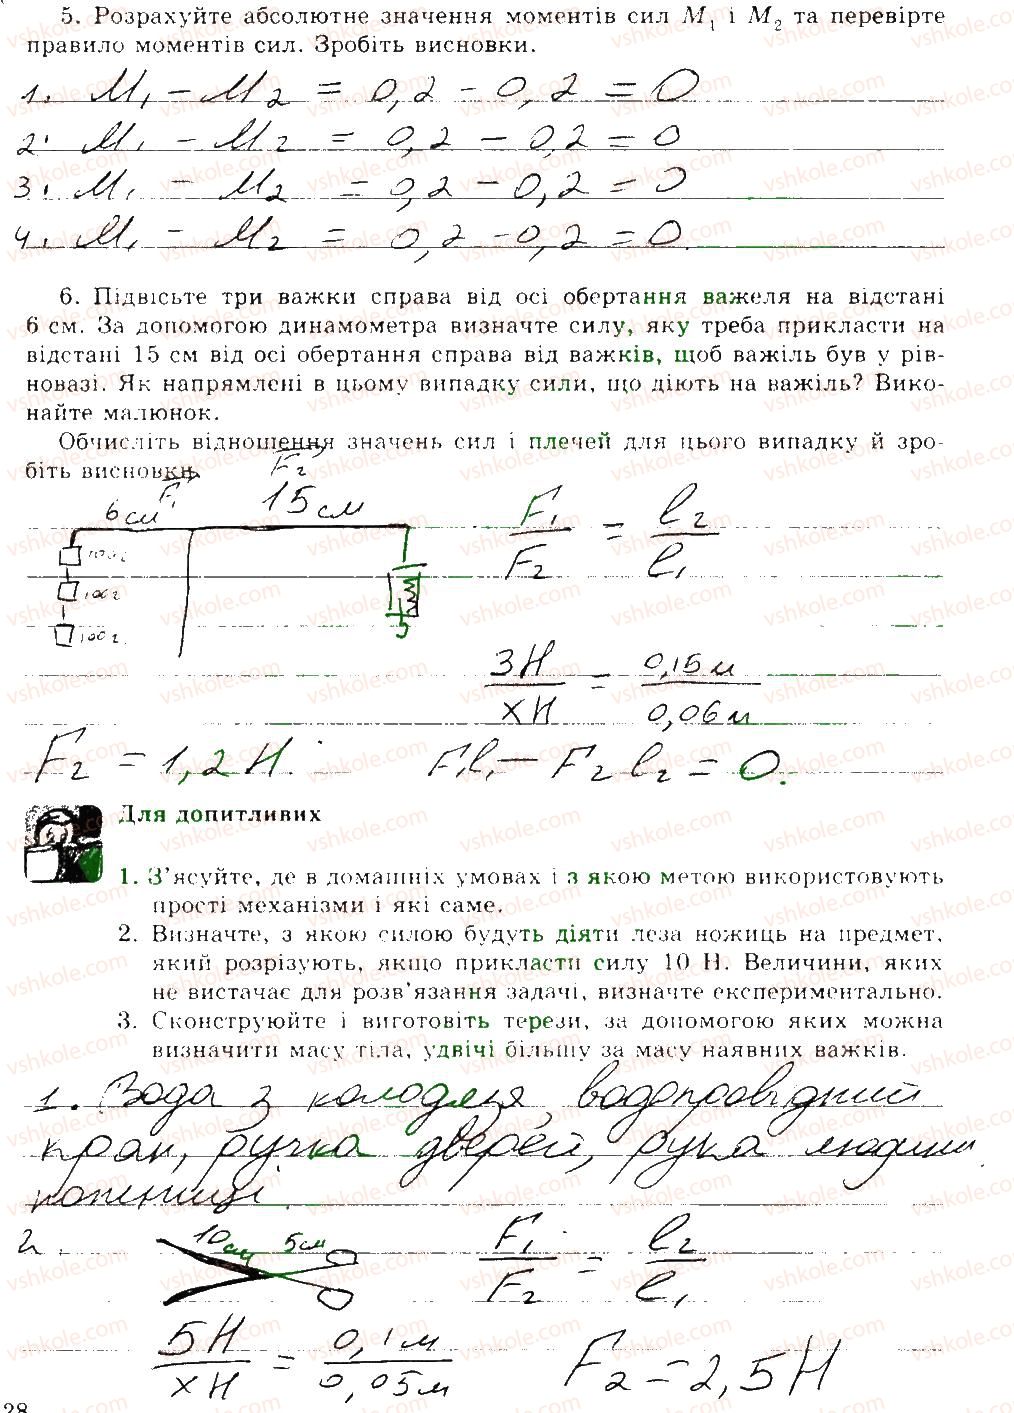 5. Розрахуйте абсолютне значення моментів сил M₁ і M₂ та перевірте
правило моментів сил. Зробіть висновки.
1. M₁ – M₂ = 0,2 – 0,2 = 0
2. M₁ – M₂ = 0,2 – 0,2 = 0
3. M₁ – M₂ = 0,2 – 0,2 = 0
4. M₁ – M₂ = 0,2 – 0,2 = 0.
6. Підвісьте три важки справа від осі обертання важеля на відстані
6 см. За допомогою динамометра визначте силу, яку треба прикласти на
відстані 15 см від осі обертання справа від важків, щоб важіль був у рів-
новазі. Як напрямлені в цьому випадку сили, що діють на важіль? Вико-
найте малюнок.
Обчисліть відношення значень сил і плечей для цього випадку й зро-
біть висновки.
F₁ F₂
6см 15см
100г
100г
100г
F₁/F₂ = l₂/l₁
3Н/хН = 0,15м/0,06м
F₂ = 1,2Н. F₁l₁ – F₂l₂ = 0.
Для допитливих
1. З'ясуйте, де в домашніх умовах і з якою метою використовують
прості механізми і які саме.
2. Визначте, з якою силою будуть діяти леза ножиць на предмет,
який розрізують, якщо прикласти силу 10 Н. Величини, яких
не вистачає для розв'язання задачі, визначте експериментально.
3. Сконструюйте і виготовіть терези, за допомогою яких можна
визначити масу тіла, удвічі більшу за масу наявних важків.
1. Вода з колодязя, водопровідний
кран, ручка дверей, рука людини
2. 10см 5см F₁/F₂ = l₂/l₁
5Н/хН = 0,1м/0,05м F₂ = 2,5Н
28
vshkole.com